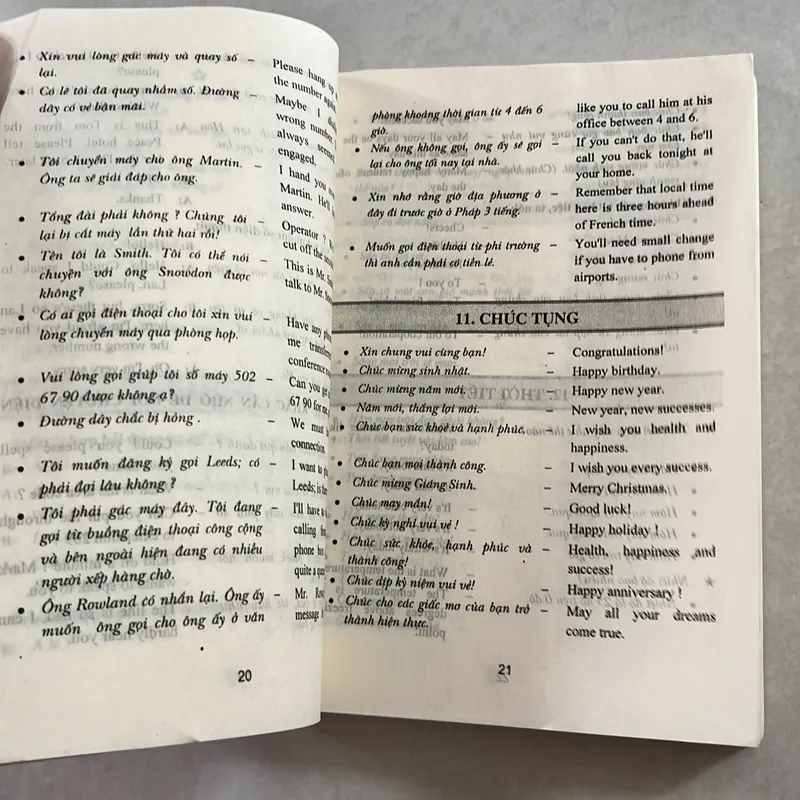 Xin vui lòng gác máy và quay số –
lại.
Có lẽ tôi đã quay nhầm số. Đường –
dây có vẻ bận mãi.
Tôi chuyển máy cho ông Martin. –
Ông ta sẽ giải đáp cho ông.
Tổng đài phải không ? Chúng tôi –
lại bị cắt máy lần thứ hai rồi!
Tên tôi là Smith. Tôi có thể nói –
chuyện với ông Snowdon được
không?
Có ai gọi điện thoại cho tôi xin vui –
lòng chuyển máy qua phòng họp.
Vui lòng gọi giúp tôi số máy 502 –
67 90 được không ạ?
Đường dây chắc bị hỏng . –
Tôi muốn đăng ký gọi Leeds; có –
phải đợi lâu không ?
Tôi phải gác máy đây. Tôi đang –
gọi từ buồng điện thoại công cộng
và bên ngoài hiện đang có nhiều
người xếp hàng chờ.
Ông Rowland có nhắn lại. Ông ấy –
muốn ông gọi cho ông ấy ở văn
Please hang up
the number again
Maybe I
wrong number
always
engaged.
I hand you
Martin. He'll
answer.
Operator ?
cut off the
This is Mr.
talk to Mr.
Have any
me
conference
Can you
67 90 for
We must
connection.
I want to
Leeds; is
I'll have to
calling
phone
quite a
Mr.
message
20
phòng khoảng thời gian từ 4 đến 6
giờ.
Nếu ông không gọi, ông ấy sẽ gọi –
lại cho ông tối nay tại nhà.
Xin nhớ rằng giờ địa phương ở –
đây đi trước giờ ở Pháp 3 tiếng.
Muốn gọi điện thoại từ phi trường –
thì anh cần phải có tiền lẻ.
like you to call him at his
office between 4 and 6.
If you can't do that, he'll
call you back tonight at
your home.
Remember that local time
here is three hours ahead
of French time.
You'll need small change
if you have to phone from
airports.
11. CHÚC TỤNG
Xin chung vui cùng bạn! – Congratulations!
Chúc mừng sinh nhật. – Happy birthday.
Chúc mừng năm mới. – Happy new year.
Năm mới, thắng lợi mới. – New year, new successes.
Chúc bạn sức khoẻ và hạnh phúc. – I wish you health and
happiness.
Chúc bạn mọi thành công. – I wish you every success.
Chúc mừng Giáng Sinh. – Merry Christmas.
Chúc may mắn! – Good luck!
Chúc kỳ nghỉ vui vẻ ! – Happy holiday !
Chúc sức khỏe, hạnh phúc và – Health, happiness and
thành công! success!
Chúc dịp kỷ niệm vui vẻ! – Happy anniversary !
Chúc cho các giấc mơ của bạn trở – May all your dreams
thành hiện thực. come true.
21